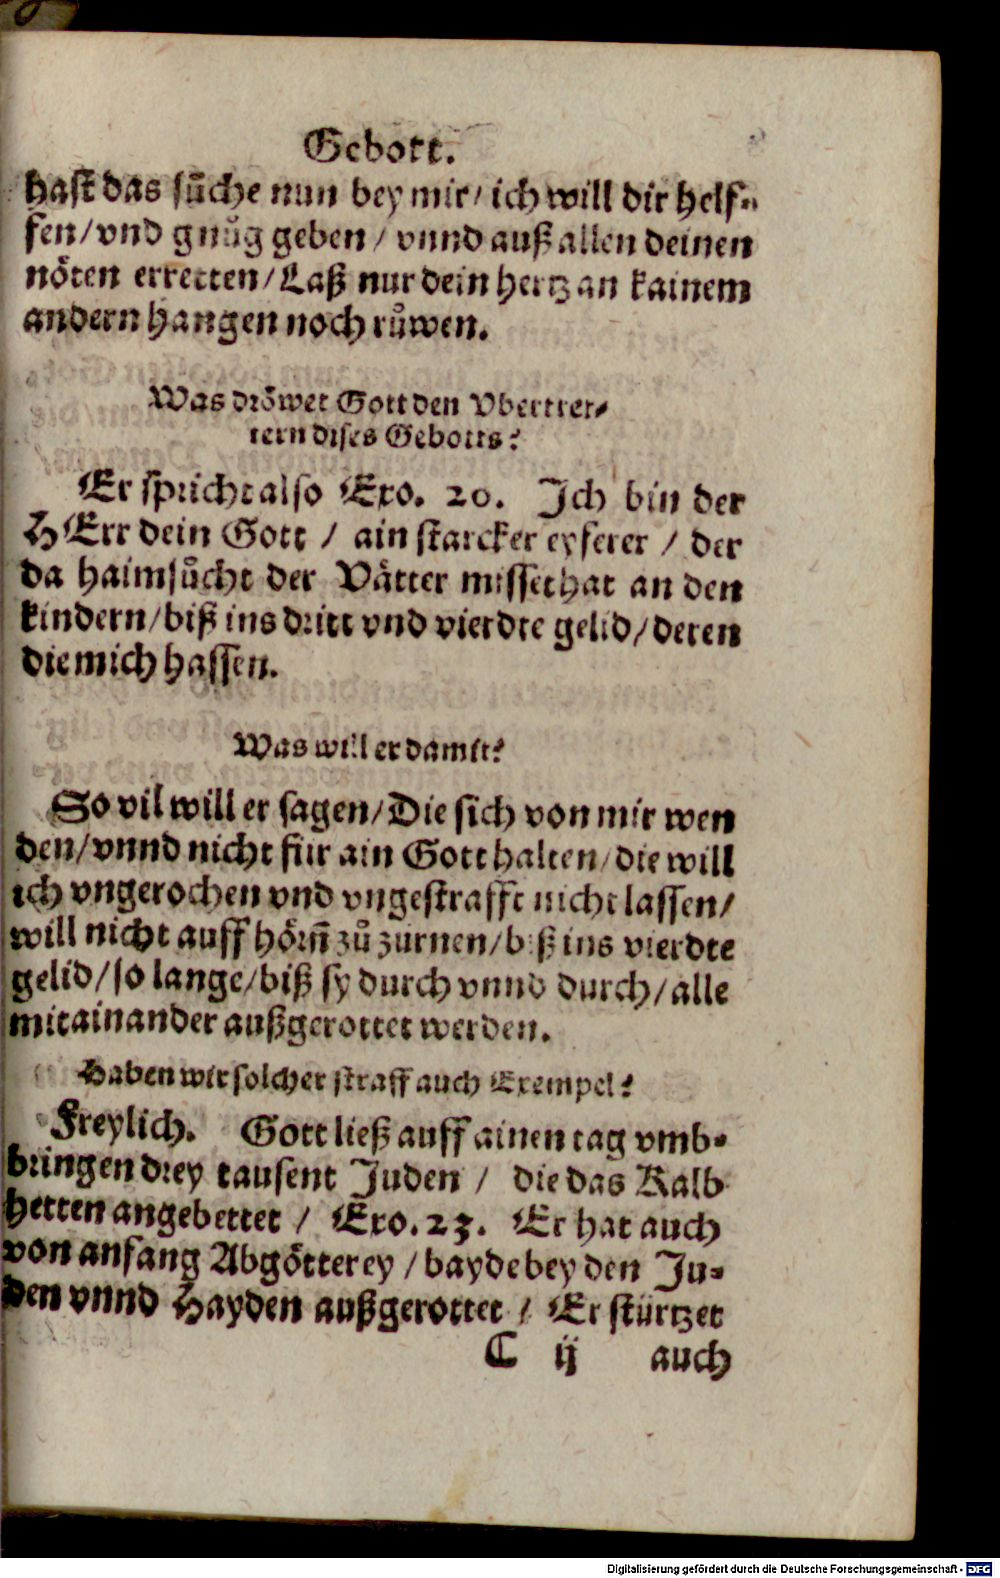 Gebott.
hast das suͤche nun bey mir/ ich will dir helf-
fen/vnd gnuͦg geben / vnnd auß allen deinen
noͤten erretten/Laß nur dein hertz an kainem
andern hangen noch ruͦwen.
Was droͤwet Gott den Vbertret-
tern dises Gebotts?
Er spricht also Exo. 20. Ich bin der
HErr dein Gott / ain starcker eyferer / der
da haimsuͦcht der Vaͤtter missethat an den
kindern/biß ins dritt vnd vierdte gelid/deren
die mich hassen.
Was will er damit?
So vil will er sagen/Die sich von mir wen
den/vnnd nicht für ain Gott halten/die will
ich vngerochen vnd vngestrafft nicht lassen/
will nicht auff hoͤrn̄ zuͦ zürnen/biß ins vierdte
gelid/so lange/biß sy durch vnnd durch/alle
mitainander außgerottet werden.
Haben wir solcher straff auch Exempel?
Freylich. Gott ließ auff ainen tag vmb-
bringen drey tausent Juden / die das Kalb
hetten angebettet / Exo. 23. Er hat auch
von anfang Abgoͤtterey / bayde bey den Ju-
den vnnd Hayden außgerottet / Er stürtzet
C ij auch
Digitalisierung gefördert durch die Deutsche Forschungsgemeinschaft - DFG